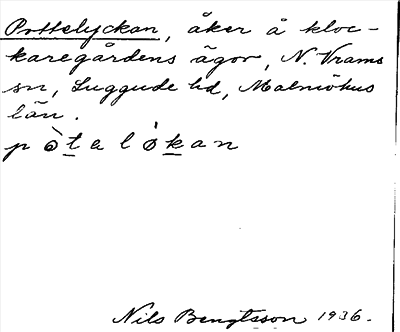 Pottelyckan, åker å kloc-
karegårdens ägor, N. Vrams
sn, Luggude hd, Malmöhus
län.
pòtalòkan
Nils Bengtsson 1936.